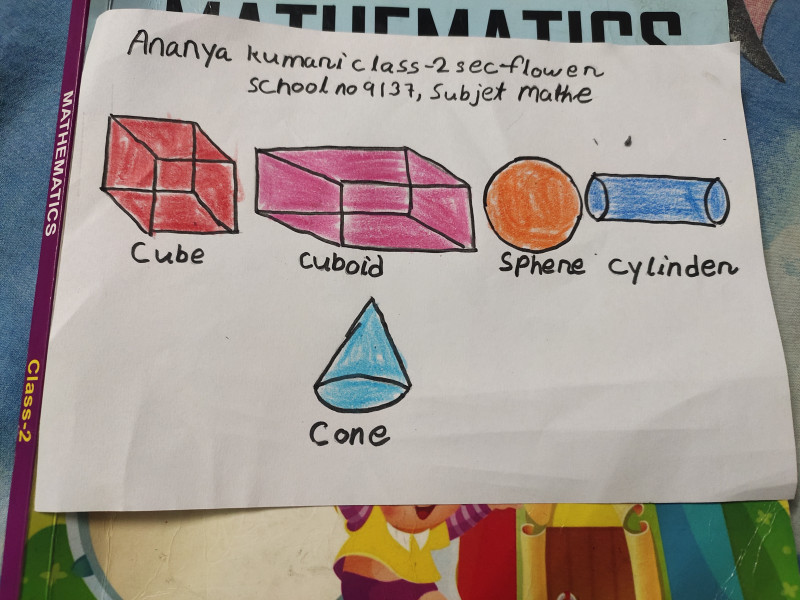 MATHEMATICS
Ananya kumari class-2 sec-flower
School no 9137, Subjet mathe
Cube
Cuboid
Sphere
Cylinder
Cone
MATHEMATICS
Class-2